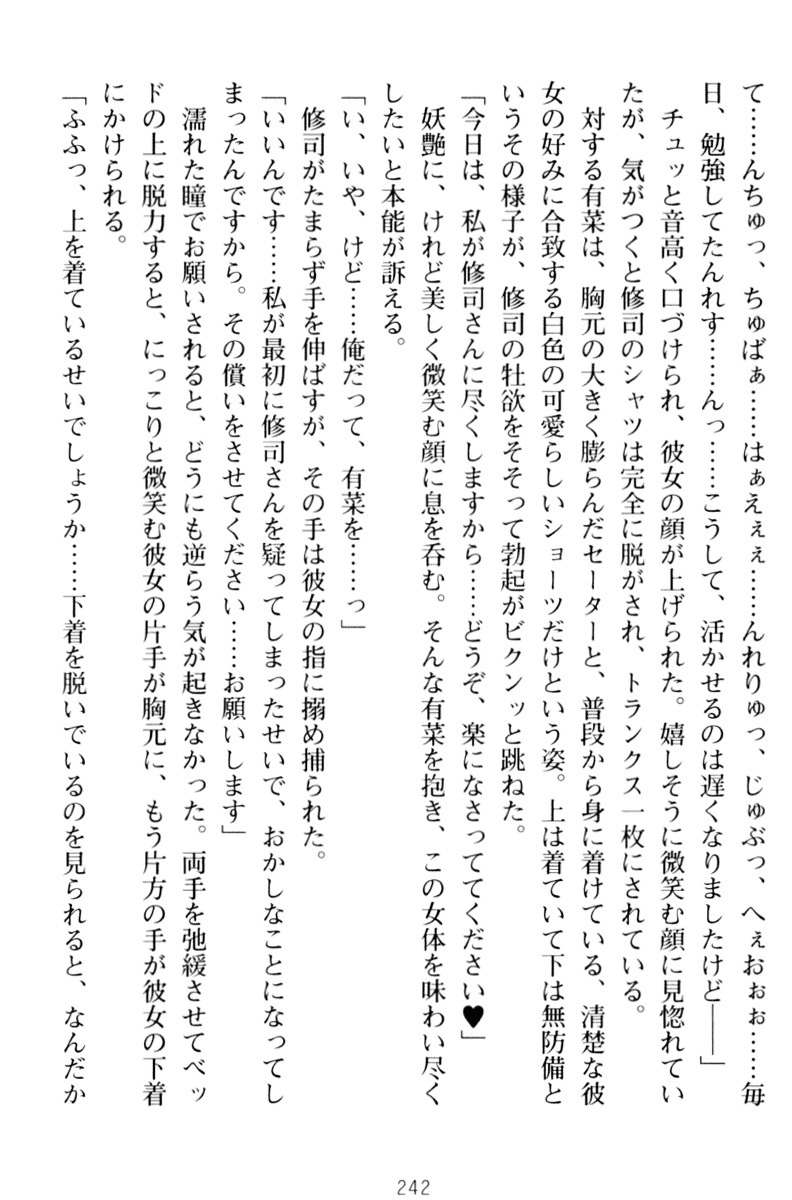 て……んちゅっ、ちゅばぁ……はぁえぇぇ……んれりゅっ、じゅぶっ、へぇおぉぉ……毎
日、勉強してたんれす……んっ……こうして、活かせるのは遅くなりましたけど――」
　チュッと音高く口づけられ、彼女の顔が上げられた。嬉しそうに微笑む顔に見惚れてい
たが、気がつくと修司のシャツは完全に脱がされ、トランクス一枚にされている。
　対する有菜は、胸元の大きく膨らんだセーターと、普段から身に着けている、清楚な彼
女の好みに合致する白色の可愛らしいショーツだけという姿。上は着ていて下は無防備と
いうその様子が、修司の牡欲をそそって勃起がビクンッと跳ねた。
「今日は、私が修司さんに尽くしますから……どうぞ、楽になさっててください♥」
　妖艶に、けれど美しく微笑む顔に息を呑む。そんな有菜を抱き、この女体を味わい尽く
したいと本能が訴える。
「い、いや、けど……俺だって、有菜を……っ」
　修司がたまらず手を伸ばすが、その手は彼女の指に搦め捕られた。
「いいんです……私が最初に修司さんを疑ってしまったせいで、おかしなことになってし
まったんですから。その償いをさせてください……お願いします」
　濡れた瞳でお願いされると、どうにも逆らう気が起きなかった。両手を弛緩させてベッ
ドの上に脱力すると、にっこりと微笑む彼女の片手が胸元に、もう片方の手が彼女の下着
にかけられる。
「ふふっ、上を着ているせいでしょうか……下着を脱いでいるのを見られると、なんだか
242